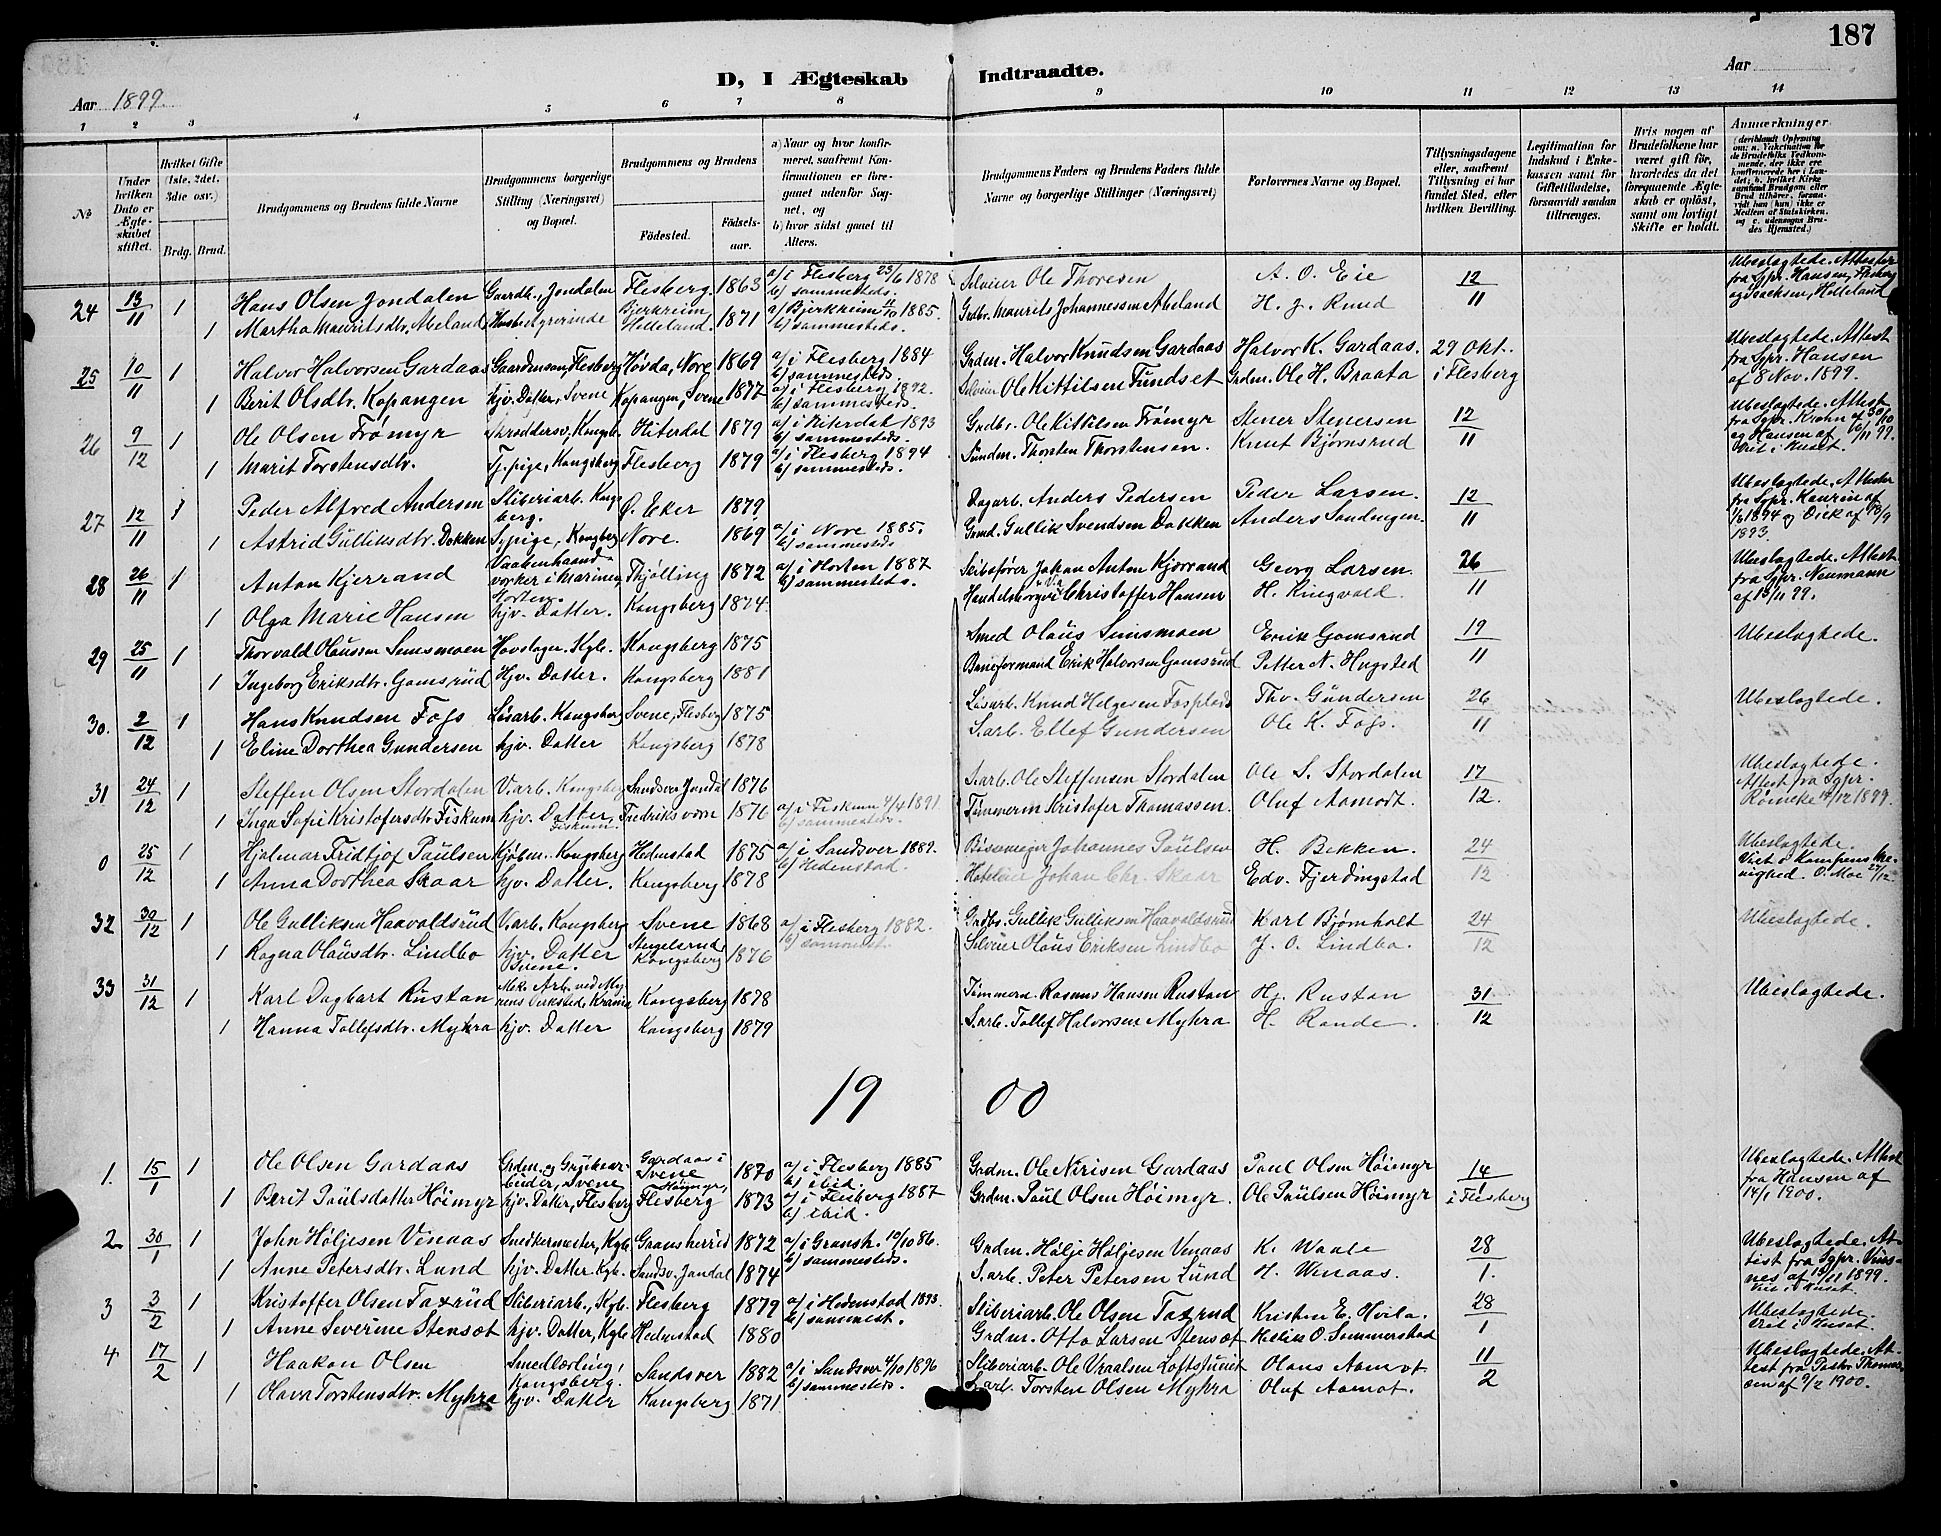 187
D, I Ægteskab Indtraadte.
Aar 1899. Aar
1 2 3 4 5 6 7 8 9 10 11 12 13 14
No
Under hvilken Dato er Ægteskabet stiftet.
Hvilket Gifte (1ste, 2det, 3die osv.)
Brdg. Brud.
Brudgommens og Brudens fulde Navne
Brudgommens borgerlige Stilling (Næringsvei) og Bopæl.
Brudgommens og Brudens
Fødested. Fødselsaar.
a) Naar og hvor konfirmeret, saafremt Konfirmationen er foregaaet udenfor Sognet, og
b) hvor sidst gaaet til Alters.
Brudgommens Faders og Brudens Faders fulde Navne og borgerlige Stillinger (Næringsvei)
Forlovernes Navne og Bopæl.
Tillysningsdagene eller, saafremt Tillysning ei har fundet Sted, efter hvilken Bevilling.
Legitimation for Indskud i Enkekassen samt for Giftetilladelse, forsaavidt saadan tiltrænges.
Hvis nogen af Brudefolkene har været gift før, hvorledes da det foregaaende Ægteskab er opløst, samt om lovligt Skifte er holdt.
Anmærkninger
24 13/11 1 Hans Olsen Jondalen Gaardbr., Jondalen Flesberg. 1863 a/ i Flesberg 23/6 1878 b/ sammesteds. Sølvier Ole Thoresen A. O. Eie 12/11 Ubeslægtede. Attester fra Sgpr. Hansen, Flesberg og Isaksen, Helleland
1 Martha Mauritsdtr. Abeland Husbestyrerinde Bjerkreim, Helleland. 1871 a/ Bjerkreim 11/10 1885. b/ sammesteds. Grdbr. Maurits Johannessen Abeland H. J. Rund
25 10/11 1 Halvor Halvorsen Gardaas Gaardmson, Flesberg Høsda, Nore 1869 a/ i Flesberg 1884 b/ sammesteds Grdm. Halvor Knudsen Gardaas Halvor K. Gardaas. 29 Okt. i Flesberg Ubeslægtede. Attest fra Sgpr. Hansen af 8 Nov. 1899.
1 Berit Olsdtr. Kopangen hjv. Datter, Svene Kopangen, Svene 1877 a/ i Flesberg 1892. b/ sammesteds. Sølvier Ole Kittilsen Fundset Grdm. Ole H. Braata
26 9/12 1 Ole Olsen Frømyr Skræddersv., Kongsb. Hiterdal 1879 a/ i Hiterdal 1893 b/ sammesteds. Grdbr. Ole Kittilsen Frømyr Stener Stenersen 12/11 Ubeslægtede. Attest fra Sgpr. Krohn af 30/10 og Hansen af 10/11 99. Viet i Huset.
1 Marit Torstensdtr. Tj.pige, Kongsberg Flesberg 1879 a/ i Flesberg 1894 b/ sammesteds. Thorsten Thorstensen. Knut Bjørnsrud
27 12/11 1 Peder Alfred Andersen Sliberiarb. Kongsberg. Ø. Eker 1879 Dagarb. Anders Pedersen Peder Larsen. 12/11 Ubeslægtede. Attester fra Sgpr. Kaurin af 1894 og Dick af 1893.
1 Astrid Gulliksdtr. Dokken Sypige, Kongsberg Nore. 1869 a/ i Nore 1885. b/ sammesteds Grmd. Gullik Svendsen Dokken Anders Sandungen.
28 26/11 1 Anton Kjerrand Vaabenhaandverker i Marinen, Horten. Thjølling 1872 a/ i Horten 1887 b/ sammesteds. Skibsfører Johan Anton Kjærrand Georg Larsen. 26/11 Ubeslægtede. Attest fra Sgpr. Neumann af 15/11 99.
1 Olga Marie Hansen hjv. Datter. Kongsberg 1874. Christoffer Hansen H. Ringvold.
29 25/11 1 Thorvald Olaussen Simesmoen Hovslager. Kgb. Kongsberg 1875 Smed Olaus Simsmoen Erik Gomsrud 19/11 Ubeslægtede.
1 Ingeborg Eriksdtr. Gomsrud Hjv. Datter. Kongsberg 1881 Baneformand Erik Halvorsen Gomsrud Petter N. Hugsted
30. 2/12 1 Hans Knudsen Fofs Løsarb. Kongsberg Svene, Flesberg 1875 Løsarb. Knud Helgesen Fosplads Thv. Gundersen 26/11 Ubeslægtede.
1 Eline Dorthea Gundersen hjv. Datter Kongsberg 1878 S.arb. Ellef Gundersen Ole K. Fofs.
31 24/12 1 Steffen Olsen Stordalen V.arb. Kongsberg Sandsvær Jondal 1876 S.arb. Ole Steffensen Stordalen Ole S. Stordalen 17/12. Ubeslægtede. Attest fra Sgpr. Rönneke 14/12 1899.
1 Inga Sofie Kristofersdtr. Fiskum hjv. Datter, Fiskum. Fredriksværn 1876 a/ i Fiskum 4/4 1891. b/ sammesteds. Tømmerm. Kristofer Thomassen. Oluf Aamodt.
0 25/12 1 Hjalmar Fridtjof Paulsen Kjøbm. Kongsberg Hedenstad 1875 a/ i Sandsver 1889. b/ Hedenstad. Bøssemager Johannes Paulsen H. Bekken. 24/12 Ubeslægtede. Viet i Kampens Menighed. O. Moe 27/12.
1 Anna Dorthea Skaar hjv. Datter. Kongsberg 1878 Hoteleier Johan Chr. Skaar Edv. Fjerdingstad
32 30/12 1 Ole Gulliksen Haavoldsrud V.arb. Kongsberg Svene 1868 a/ i Flesberg 1882. b/ sammest. Grdbr. Gullik Gulliksen Haavoldsrud Karl Bjørnholt 24/12 Ubeslægtede.
1 Ragna Olausdtr. Lindbo hjv. Datter Svene. Stegelsrud Kongsberg 1876 Sølvier Olaus Eriksen Lindbo J. O. Lindbo.
33 31/12 1 Karl Dagbart Rustan Mek. Arb. ved Myrens Verksted, Krania Kongsberg 1878 Tømmerm. Rasmus Hansen Rustan Hj. Rustan 31/12 Ubeslægtede.
1 Hanna Tollefsdtr. Myhra hjv. Datter Kongsberg 1879 S.arb. Tollef Halvorsen Myhra H. Rande.
19 00
1. 15/1 1 Ole Olsen Gardaas Grdm. og Grubearbeider, Svene Gardaas i Svene 1870 a/ i Flesberg 1885 b/ ibid. Grdm. Ole Nirisen Gardaas Paul Olsen Höimyr 14/1 i Flesberg Ubeslægtede. Attest fra Hansen af 14/1 1900.
1 Berit Paulsdatter Höimyr hjv. Datter, Flesberg Høymyr, Flesberg 1873 a/ i Flesberg 1887 b/ ibid. Grdm. Paul Olsen Höimyr. Ole Paulsen Höimyr
2 30/1 1 John Höljesen Venaas Snedkermester, Kgb. Gransherred 1872 a/ i Gransh. 10/10 86. b/ sammesteds. Grdm. Hölje Höljesen Venaas K. Waale 28/1. Ubeslægtede. Attest fra Sgpr. Vinsnes af 15/11 1899. Viet i Huset.
1 Anne Petersdtr. Lund hjv. Datter Kgb. Sandsv. Jondal 1874 S.arb. Peter Petersen Lund H. Wenaas.
3 3/2 1 Kristoffer Olsen Taxrud Sliberiarb., Kgb. Flesberg 1879 a/ i Hedenstad 1893. b/ sammest. Sliberiarb. Ole Olsen Taxrud Kristen E. Hvila. 28/1 Ubeslægtede. Viet i Huset.
1 Anne Severine Stensæt hjv. Datter, Kgb. Hedenstad 1880 Grdm. Otto Larsen Stensæt Helius O. Sommerstad
4 17/2 1 Haakon Olsen Smedlærling, Kongsberg. Sandsver 1882 a/ i Sandsver 4/10 1896 b/ sammesteds. Sliberiarb. Ole Vraalsen Loftstueiet Olaus Aamot 11/2 Ubeslægtede. Attest fra Pastor Thomassen af 9/2 1900.
1 Olava Torstensdtr. Myhra hjv. Datter Kongsberg 1871 S.arb. Torsten Olsen Myhra Oluf Aamot.